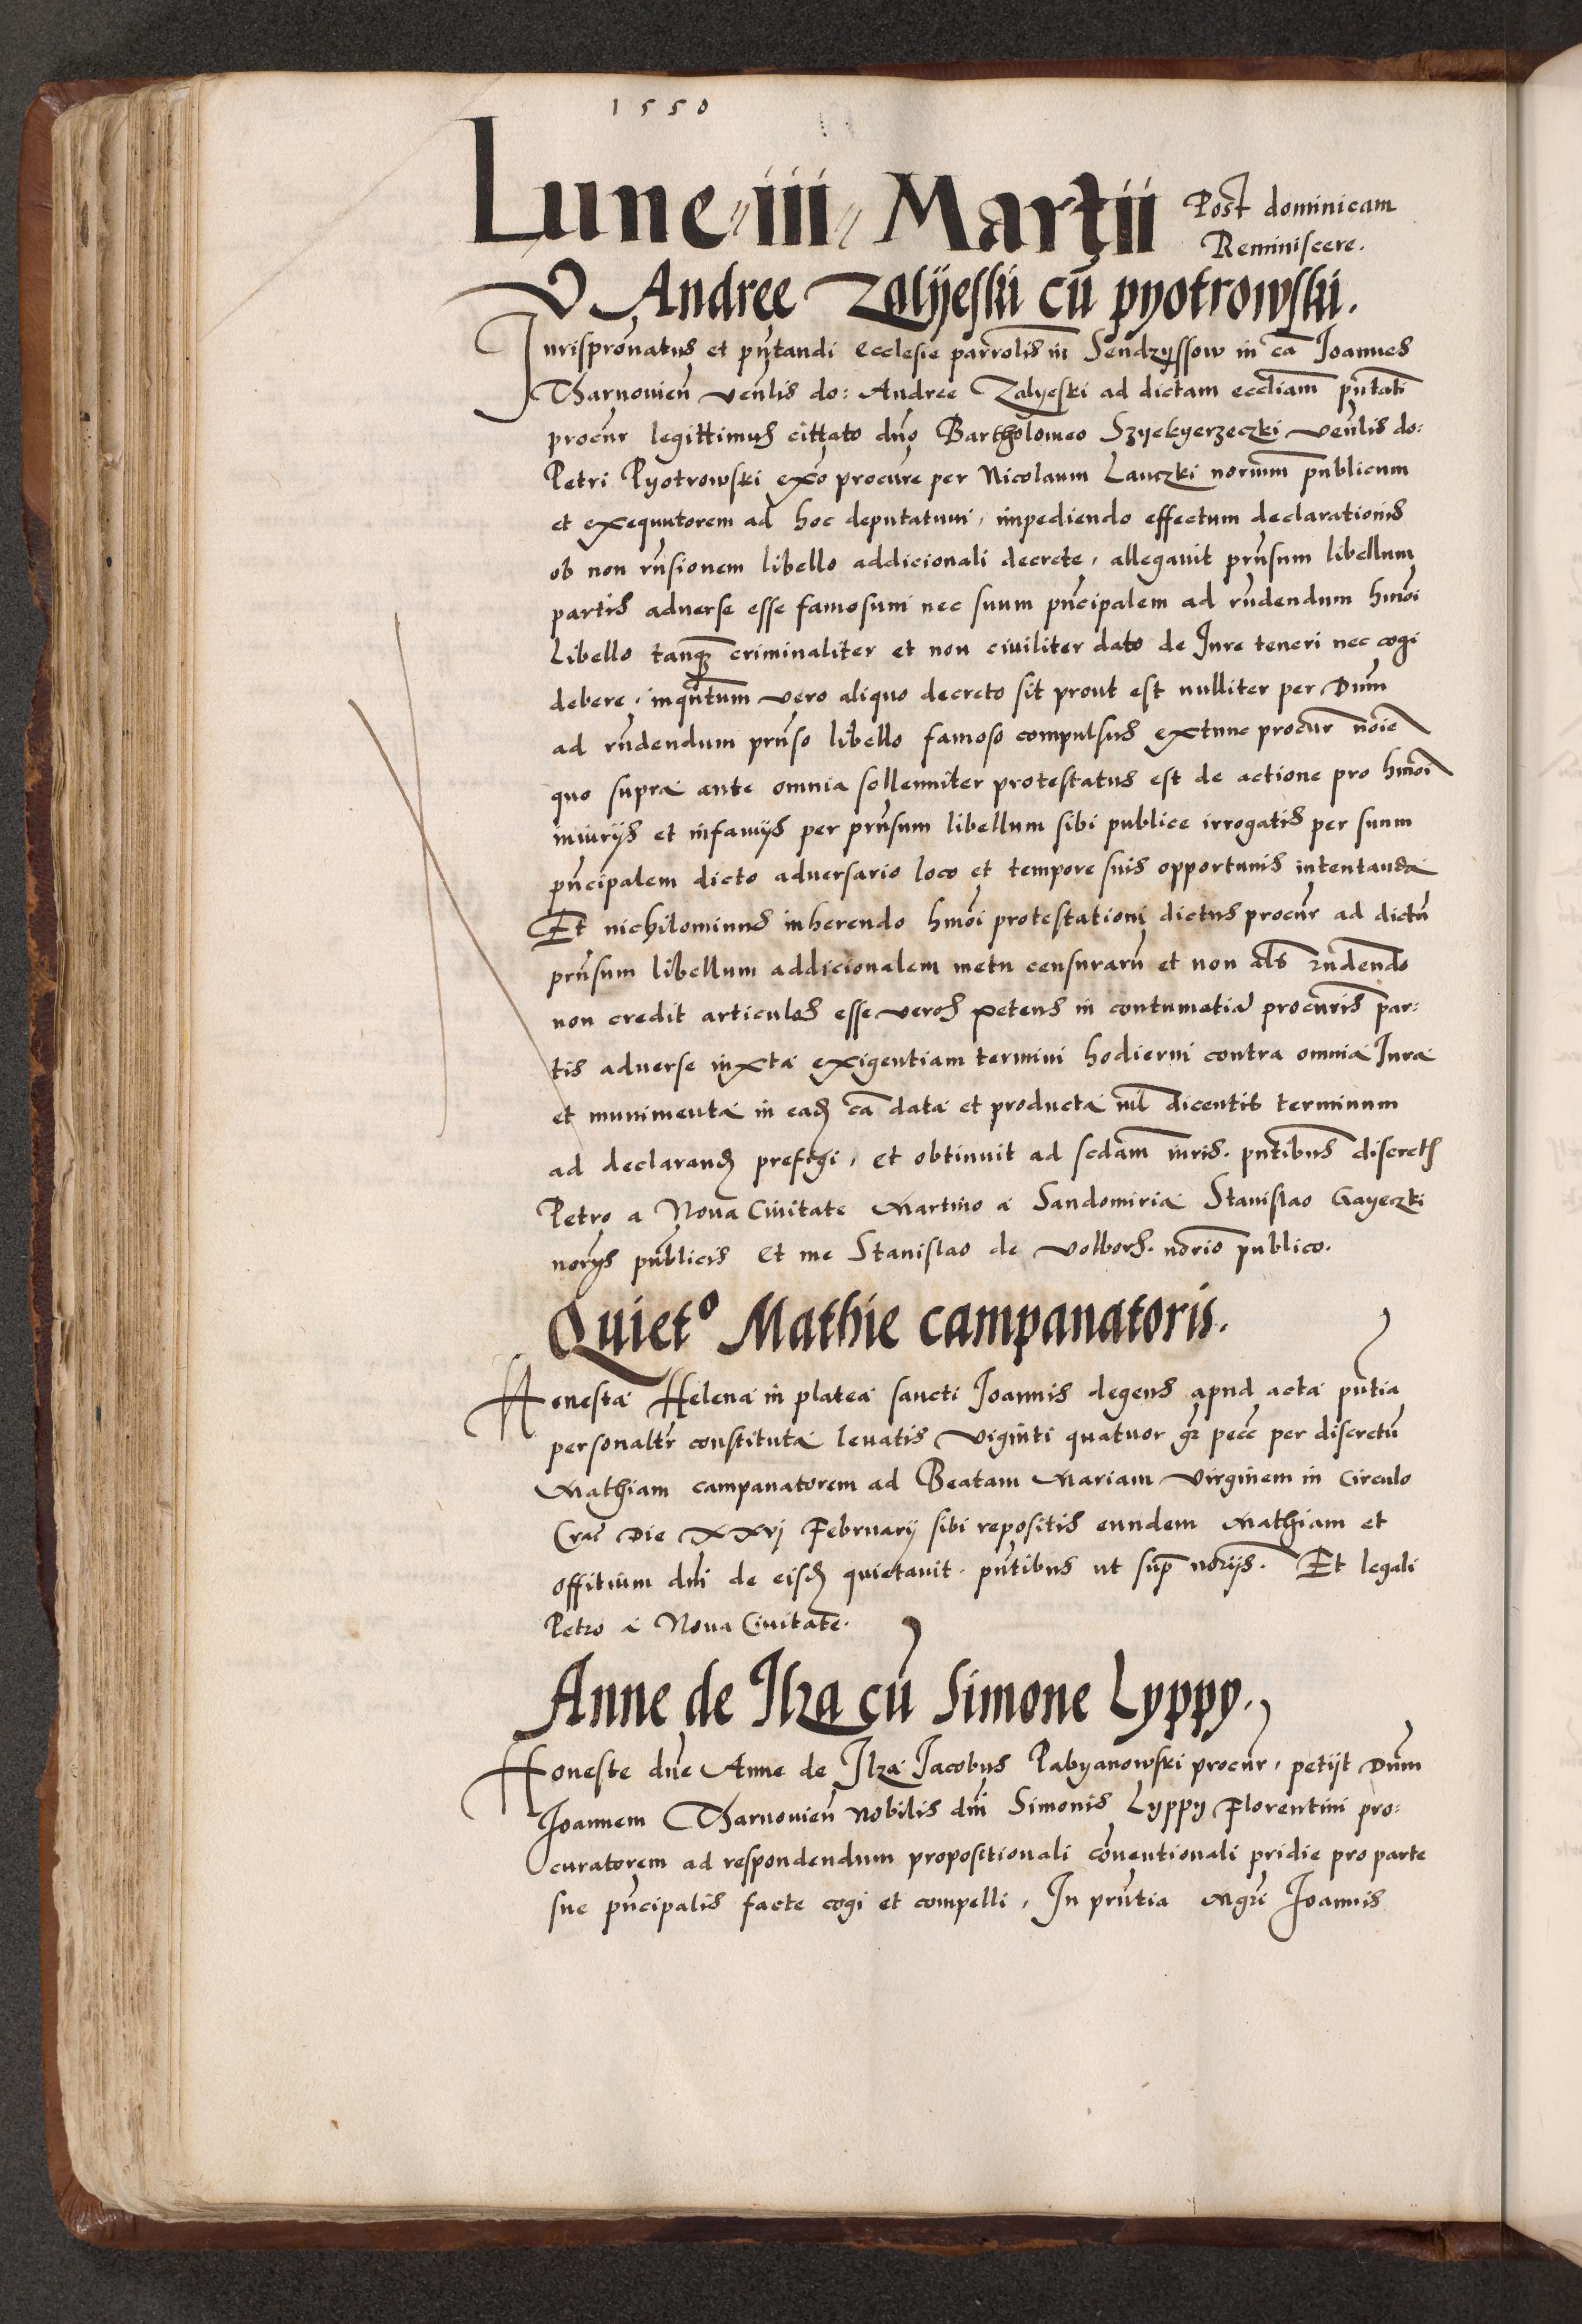 1550
Lune iii Martii Post dominicam
Reminiscere.
D Andree Zalyeski cū pyotrowski.
Jurispronatus et pn̄tandi ecclesie parrolis in Sendzyssow in cā Joannes
Tharnouien̄ ven̄lis do: Andree Zalyeski ad dictam eccliam pn̄tati
procur̄ legittimus cittato dn̄o Bartholomeo Szyekyerzeczki ven̄lis do:
Petri Pyotrowski exo procure per Nicolaum Lanczki norium publicum
et exequutorem ad hoc deputatum, impediendo effectum declarationis
ob non rn̄sionem libello addicionali decrete, allegauit prn̄sum libellum
partis aduerse esse famosum nec suum pn̄cipalem ad rn̄dendum hmōi
Libello tanq̄ criminaliter et non ciuiliter dato de Jure teneri nec cogi
debere, inqn̄tum vero aliquo decreto sit prout est nulliter per Dum̄
ad rn̄dendum prn̄so libello famoso compulsus extunc procur̄ noīe
quo supra ante omnia sollemniter protestatus est de actione pro hmōi
iniurijs et infamijs per prn̄sum libellum sibi publice irrogatis per suum
pn̄cipalem dicto aduersario loco et tempore suis opportunis intentanda
Et nichilominus inherendo hmōi protestationi dictus procur̄ ad dictū
prn̄sum libellum addicionalem metu censurarū et non als̄ rn̄dendo
non credit articulos esse veros petens in contumatia procuris par:
tis aduerse iuxta exigentiam termini hodierni contra omnia Jura
et munimenta in ead̄ cā data et producta nil dicentis terminum
ad declarand̄ prefigi, et obtinuit ad scdam iuris. pn̄tibus discretis
Petro a Noua Ciuitate Martino a Sandomiria Stanislao Gayeczki
norijs publicis Et me Stanislao de Volborz. norio publico.
Quiet° Mathie campanatoris.
Honesta Helena in platea sancti Joannis degens apud acta pn̄tia
personaltr̄ constituta leuatis viginti quatuor gr̄ pecc̄ per discretū
Mathiam campanatorem ad Beatam Mariam Virginem in Circulo
Crac̄ Die xxvj Februarij sibi repositis eundem Mathiam et
offitium dn̄i de eisd̄ quietauit. pn̄tibus ut sup̄ norijs. Et legali
Petro a Noua Ciuitate.
Anne de Ilza cū Simone Lyppy.
Honeste dn̄e Anne de Ilza Jacobus Pabyanowski procur̄, petijt Dum̄
Joannem Tharnouien̄ Nobilis dn̄i Simonis Lyppy Florentini pro:
curatorem ad respondendum propositionali cōuentionali pridie pro parte
sue pn̄cipalis facte cogi et compelli, In prn̄tia Mgri Joannis